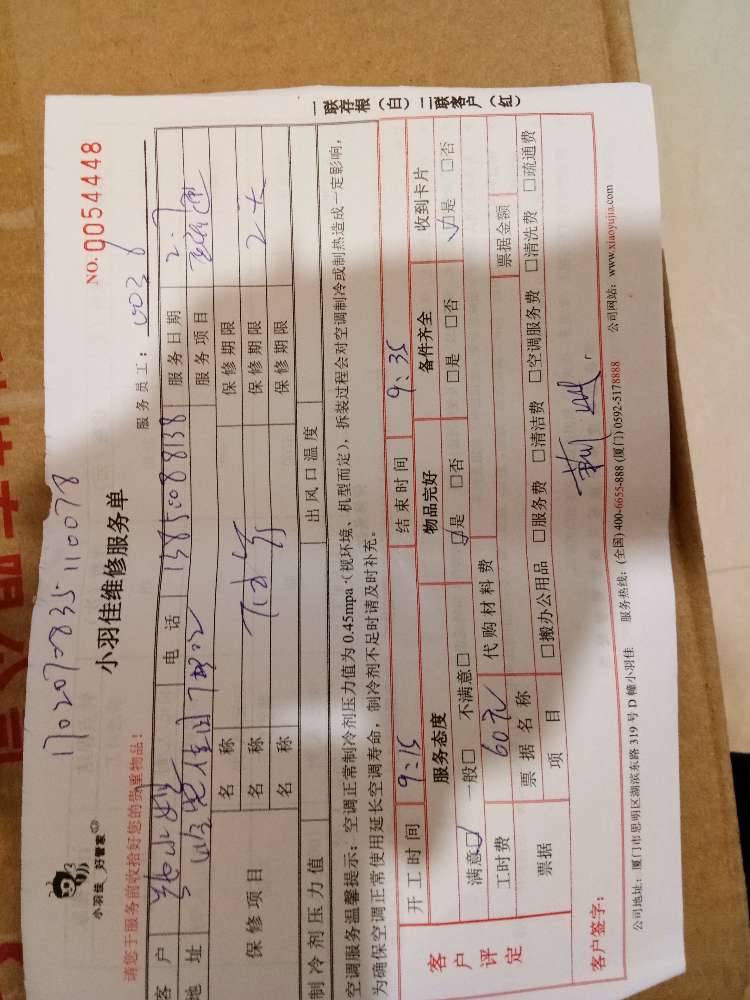 17020708351110078
小羽佳 好管家
小羽佳维修服务单
NO.0054448
请您于服务前收拾好您的贵重物品!
服务员工: 0036
客户 电话 13850088138 服务日期 2.7
地址 服务项目
保修项目 名称 保修期限
名称 下水管 保修期限 2天
名称 保修期限
制冷剂压力值 出风口温度
空调服务温馨提示:空调正常制冷剂压力值为0.45mpa(视环境、机型而定),拆装过程会对空调制冷或制热造成一定影响,
为确保空调正常使用延长空调寿命,制冷剂不足时请及时补充。
客户评定
开工时间 9:15 结束时间 9:35
服务态度 物品完好 备件齐全 收到卡片
满意☑ 一般□ 不满意□ ☑是 □否 □是 □否 ☑是 □否
工时费 60元 代购材料费
票据 票据名称 票据金额
项目 □搬办公用品 □服务费 □清洁费 □空调服务费 □清洗费 □疏通费
客户签字:
公司地址:厦门市思明区湖滨东路319号D幢小羽佳 服务热线:(全国)400-6655-888 (厦门)0592-5178888 公司网站:www.xiaoyujia.com
一联存根(白)二联客户(红)